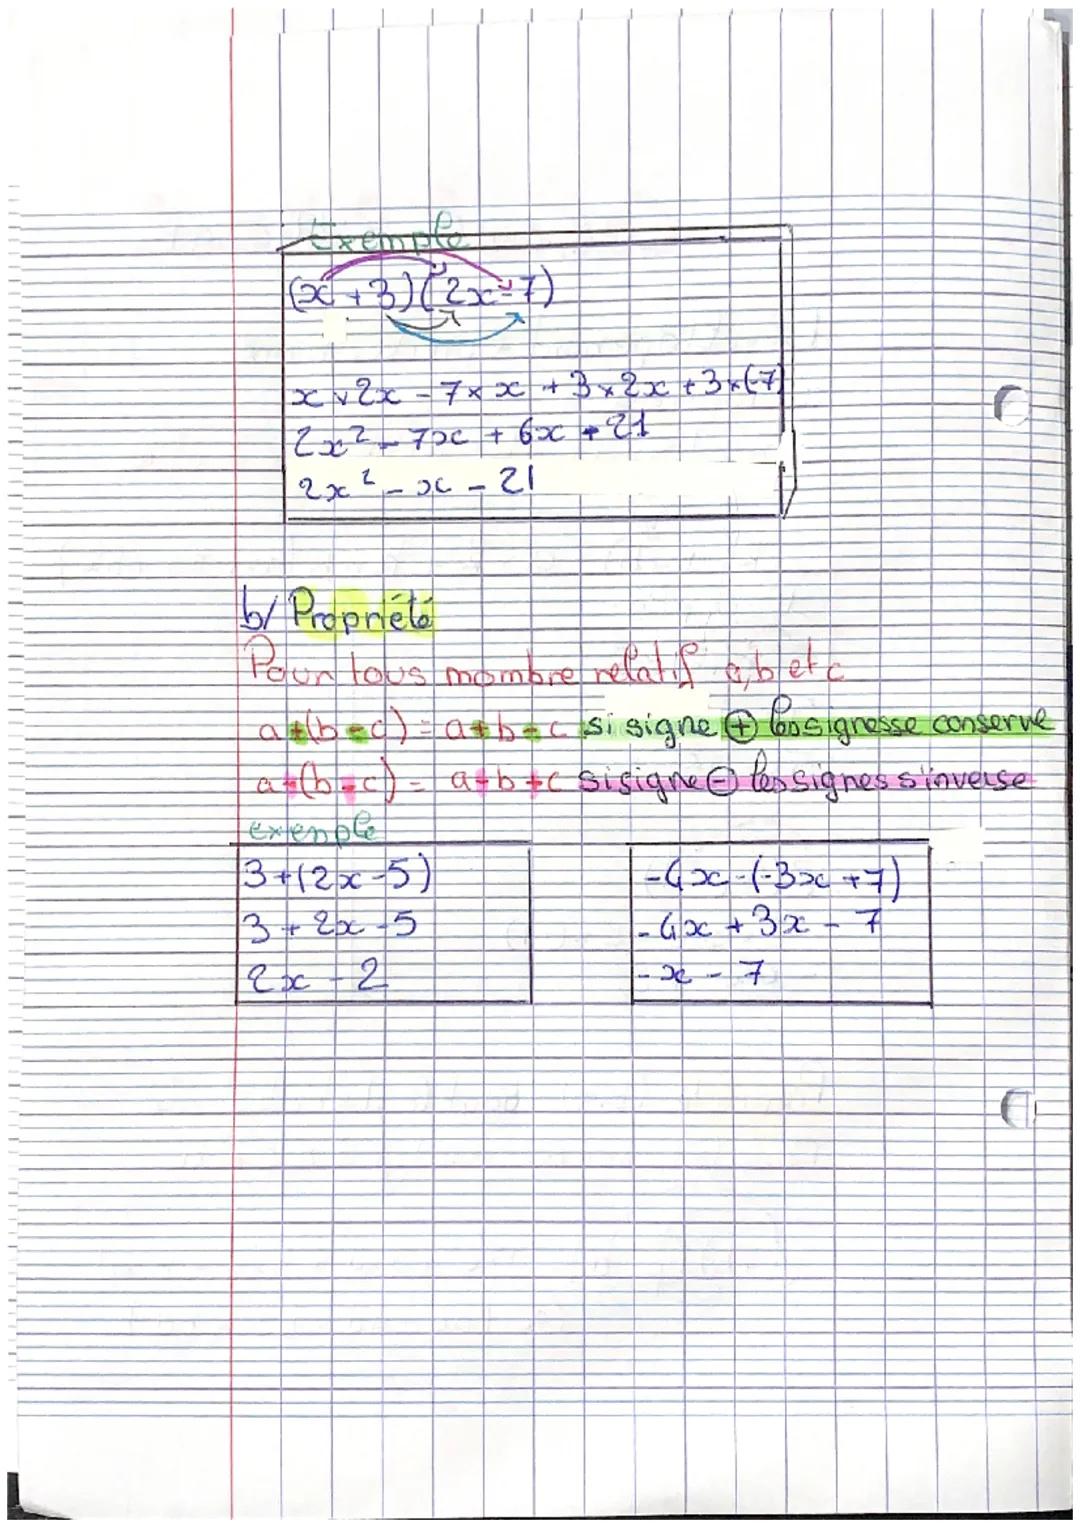 Exemple
(x + 3)(2x-7)
x x 2x - 7 x x + 3 x 2x + 3 x (-7)
2x² - 7x + 6x + 21
2x² - x - 21
b/ Propriété
Pour tous mombre relatif a, b et c
a+(b-c) = a+b-c si signe ⊕ les signes se conserve
a-(b-c) = a-b+c si signe ⊖ les signes s'inverse
exenple
3+(2x-5)
3+2x-5
2x-2
-4x-(-3x+7)
-4x+3x-7
-x-7